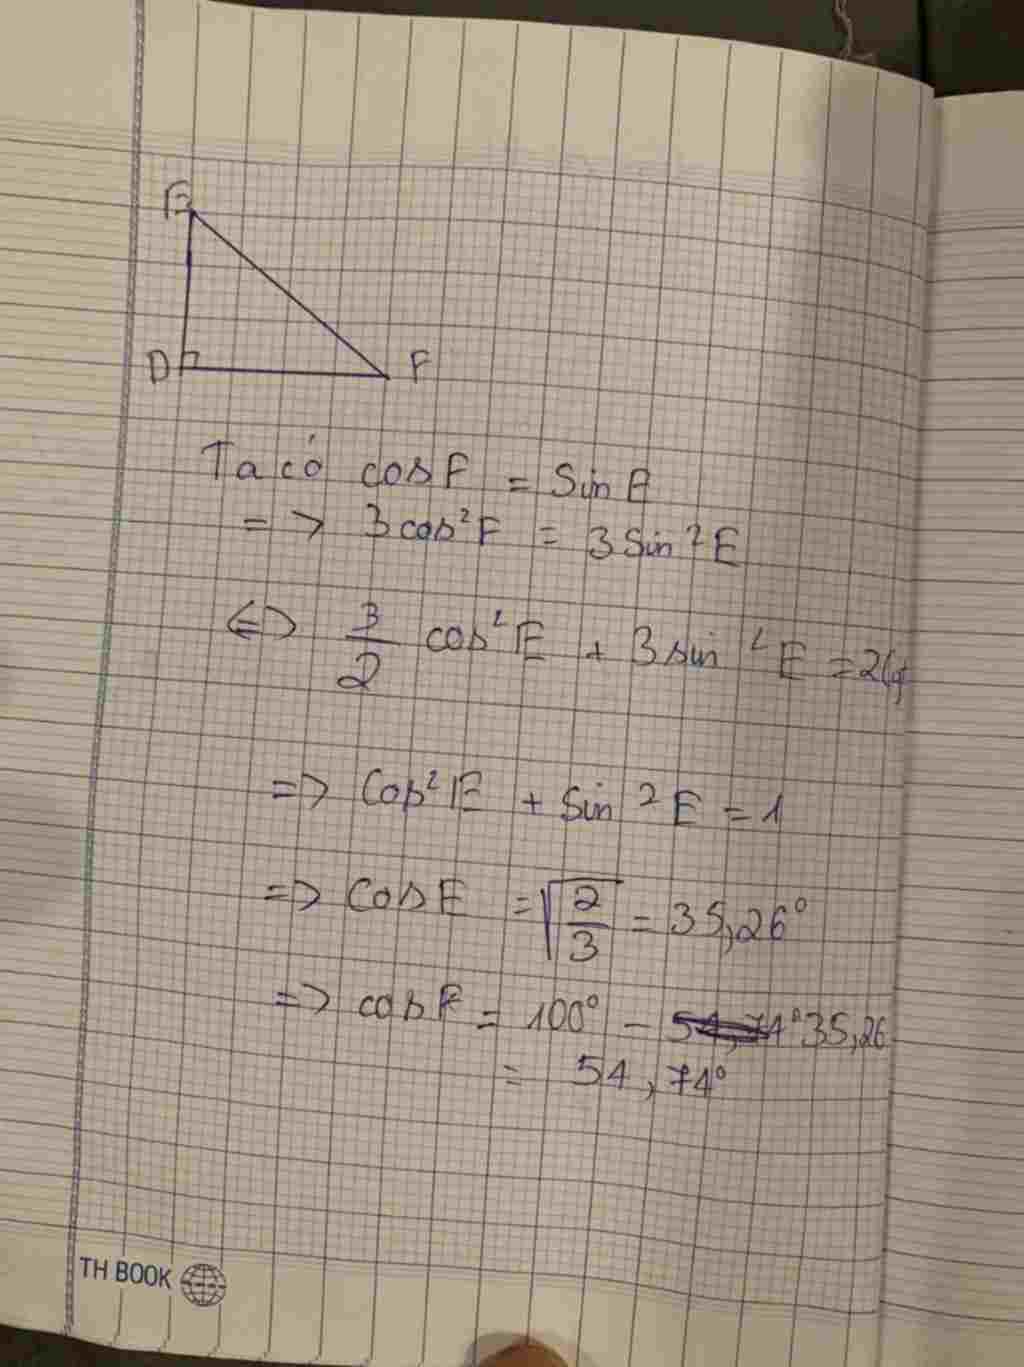 E
D F
Ta có cos F = Sin E
=> 3 cos²F = 3 Sin²E
<=> 3/2 cos²E + 3 sin²E = 2
=> Cos²E + Sin²E = 1
=> Cos E = √(2/3) = 35,26°
=> cos F = 100° - 35,26
= 54,74°
TH BOOK